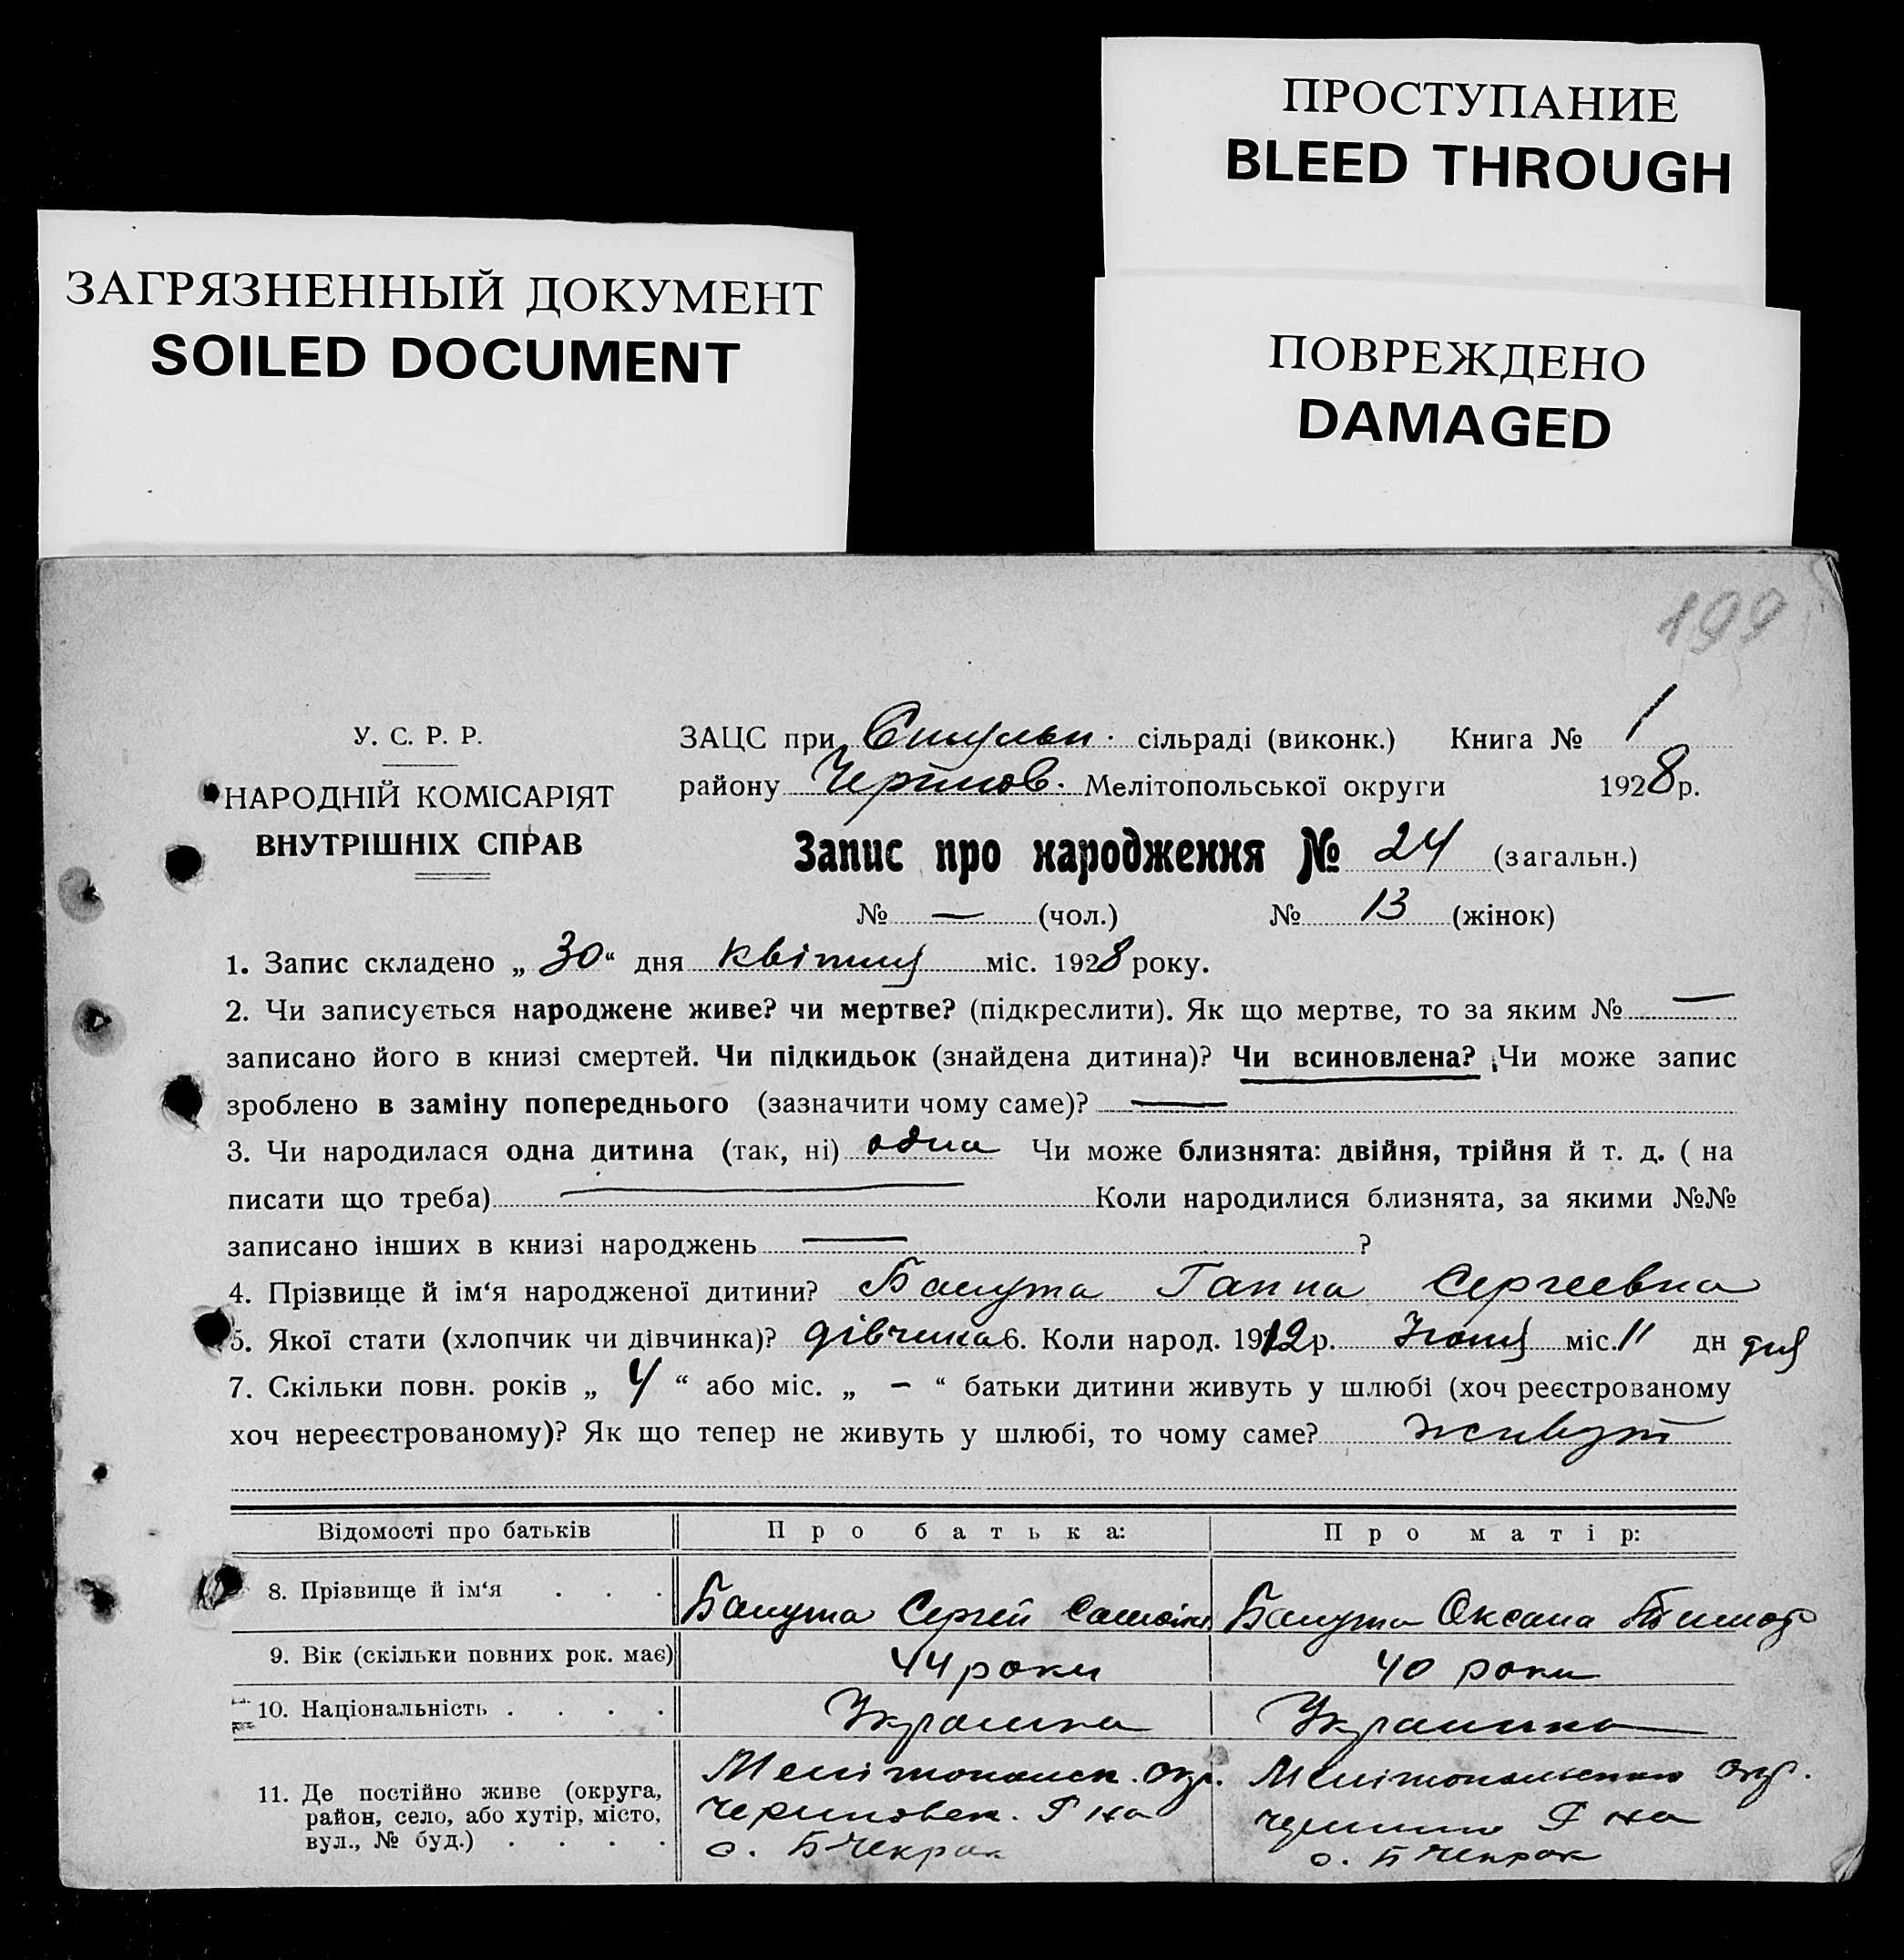 ПРОСТУПАНИЕ
BLEED THROUGH
ЗАГРЯЗНЕННЫЙ ДОКУМЕНТ
SOILED DOCUMENT
ПОВРЕЖДЕНО
DAMAGED
199
У. С. Р. Р.
НАРОДНІЙ КОМІСАРІЯТ
ВНУТРІШНІХ СПРАВ
ЗАЦС при сільраді (виконк.) Книга № 1
району Мелітопольської округи 1928 р.
Запис про народження № 24 (загальн.)
№ — (чол.) № 13 (жінок)
1. Запис складено „ 30 “ дня квітня міс. 1928 року.
2. Чи записується народжене живе? чи мертве? (підкреслити). Як що мертве, то за яким № —
записано його в книзі смертей. Чи підкидьок (знайдена дитина)? Чи всиновлена? Чи може запис
зроблено в заміну попереднього (зазначити чому саме)? —
3. Чи народилася одна дитина (так, ні) одна Чи може близнята: двійня, трійня й т. д. ( на
писати що треба) — Коли народилися близнята, за якими №№
записано інших в книзі народжень — ?
4. Прізвище й ім‘я народженої дитини? Ганна Сергеевна
5. Якої стати (хлопчик чи дівчинка)? дівчина 6. Коли народ. 1912 р. міс. 11 дн дня
7. Скільки повн. років „ 4 “ або міс. „ - “ батьки дитини живуть у шлюбі (хоч реєстрованому
хоч нереєстрованому)? Як що тепер не живуть у шлюбі, то чому саме? живут
Відомості про батьків Про батька: Про матір:
8. Прізвище й ім‘я . . . Сергей Оксана
9. Вік (скільки повних рок. має) 44 роки 40 роки
10. Національність . . . . Украинка Украинка
11. Де постійно живе (округа,
район, село, або хутір, місто,
вул., № буд.) . . . .
Мелітопольск. окр.
Р на
с. Б Чекрак
окр.
Р на
с. Б Чекрак